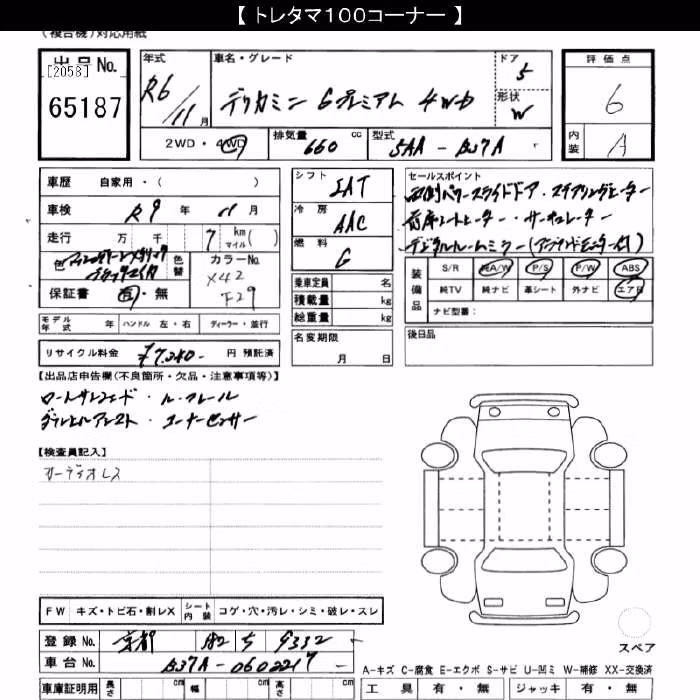 【 トレタマ100コーナー 】
(複合機)対応用紙
出品No.
[2058]
65187
年式
R6/11月
車名・グレード
デリカミニ Gプレミアム 4WD
ドア
5
形状
W
2WD・4WD
排気量
660
cc
型式
5AA-B37A
評価点
6
内装
A
車歴 自家用・( )
車検 R9 年 11 月
走行 万 千 7 km マイル( )
色
色替
カラーNo.
X42
F29
保証書 有・無
シフト
IAT
冷房
AAC
燃料
G
乗車定員 名
積載量 kg
総重量 kg
セールスポイント
両側パワースライドドア・ステアリングヒーター
前席シートヒーター・サーキュレーター
デジタルルームミラー(アラウンドモニター付)
装備品
S/R 純A/W P/S P/W ABS
純TV 純ナビ 革シート 外ナビ エアB
ナビ型番:
モデル年式 年 ハンドル 左・右 ディーラー・並行
名変期限
月 日
後日品
リサイクル料金 ¥7,280- 円 預託済
【出品店申告欄(不良箇所・欠品・注意事項等)】
ルーフレール
コーナーセンサー
【検査員記入】
オーディオレス
FW キズ・トビ石・割レX シート内装 コゲ・穴・汚レ・シミ・破レ・スレ
登録No. 京都 582 ち 9332
車台No. B37A-0602217
スペア
A-キズ C-腐食 E-エクボ S-サビ U-凹ミ W-補修 XX-交換済
車庫証明用 長さ cm 幅 cm 高さ cm
工具 有・無 ジャッキ 有・無